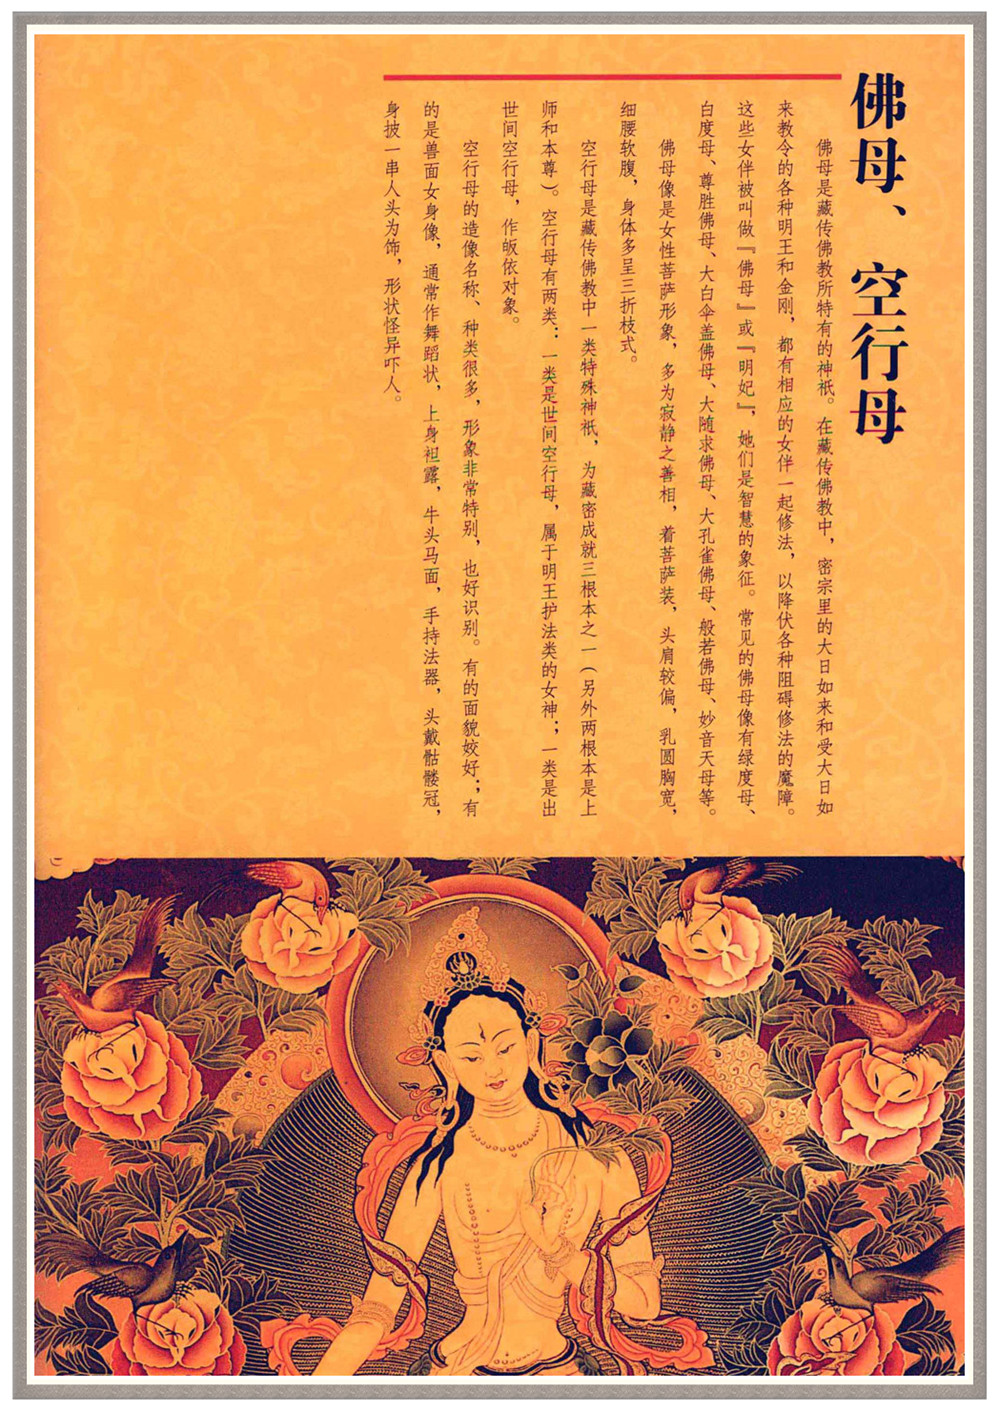 佛母、空行母
佛母是藏传佛教所特有的神祇。在藏传佛教中，密宗里的大日如来和受大日如
来教令的各种明王和金刚，都有相应的女伴一起修法，以降伏各种阻碍修法的魔障。
这些女伴被叫做『佛母』或『明妃』，她们是智慧的象征。常见的佛母像有绿度母、
白度母、尊胜佛母、大白伞盖佛母、大随求佛母、大孔雀佛母、般若佛母、妙音天母等。
佛母像是女性菩萨形象，多为寂静之善相，着菩萨装，头肩较偏，乳圆胸宽，
细腰软腹，身体多呈三折枝式。
空行母是藏传佛教中一类特殊神祇，为藏密成就三根本之一（另外两根本是上
师和本尊）。空行母有两类：一类是世间空行母，属于明王护法类的女神；一类是出
世间空行母，作皈依对象。
空行母的造像名称、种类很多，形象非常特别，也好识别。有的面貌姣好；有
的是兽面女身像，通常作舞蹈状，上身袒露，牛头马面，手持法器，头戴骷髅冠，
身披一串人头为饰，形状怪异吓人。